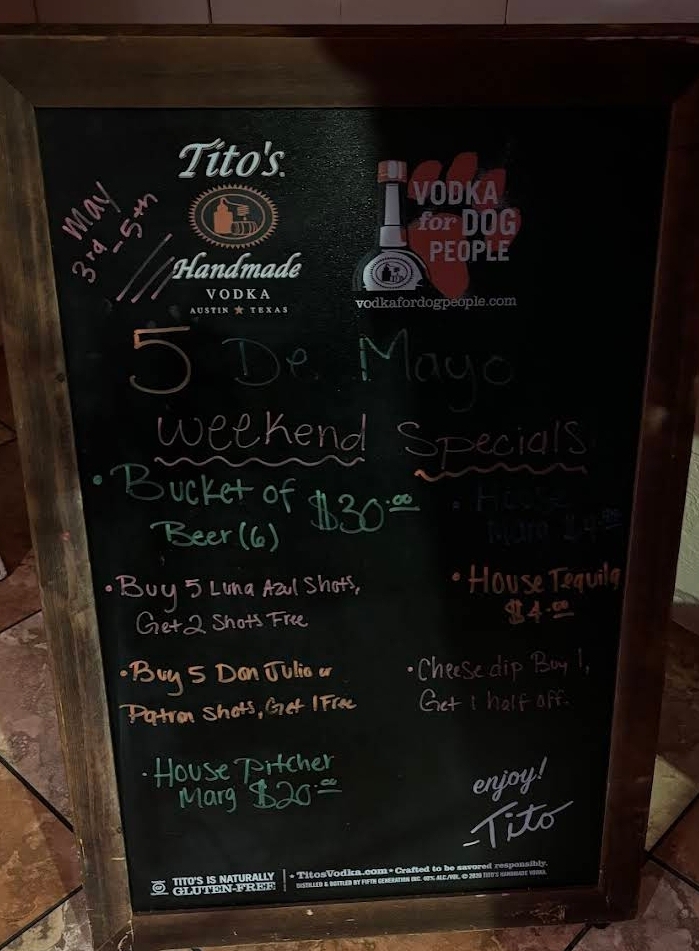 Tito's
Handmade
VODKA
AUSTIN ★ TEXAS
VODKA
for DOG
PEOPLE
vodkafordogpeople.com
May
3rd - 5th
5 De Mayo
Weekend Specials
• Bucket of
Beer (6) $30.00
• Buy 5 Luna Azul Shots,
Get 2 Shots Free
• Buy 5 Don Julio or
Patron Shots, Get 1 Free
• House Pitcher
Marg $20.00
• House
Marg
• House Tequila
$4.00
• Cheese dip Buy 1,
Get 1 half off.
enjoy!
-Tito
TITO'S IS NATURALLY
GLUTEN-FREE
• TitosVodka.com • Crafted to be savored responsibly.
DISTILLED & BOTTLED BY FIFTH GENERATION INC. 40% ALC./VOL. © 2020 TITO'S HANDMADE VODKA.